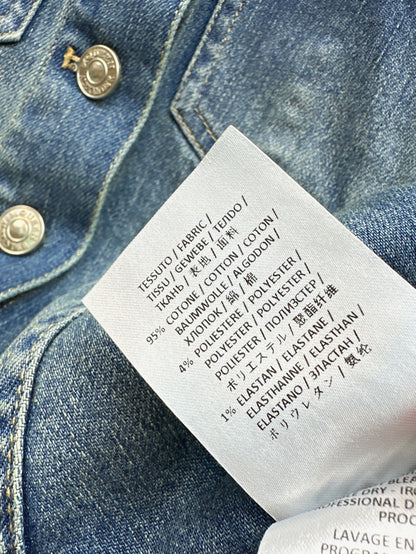 TESSUTO / FABRIC /
TISSU / GEWEBE / ТЕЛО /
ТКАНЬ / 表地 / 面料
95% COTONE / COTTON / COTON /
BAUMWOLLE / ALGODON /
ХЛОПОК / 綿 / 棉
4% POLIESTERE / POLYESTER /
POLYESTER / POLYESTER /
POLIESTER / ПОЛИЭСТЕР /
ポリエステル / 聚酯纤维
1% ELASTAN / ELASTANE /
ELASTHANNE / ELASTHAN /
ELASTANO / ЭЛАСТАН /
ポリウレタン / 氨纶
DRY - IRO
PROFESSIONAL D
PROC
LAVAGE EN